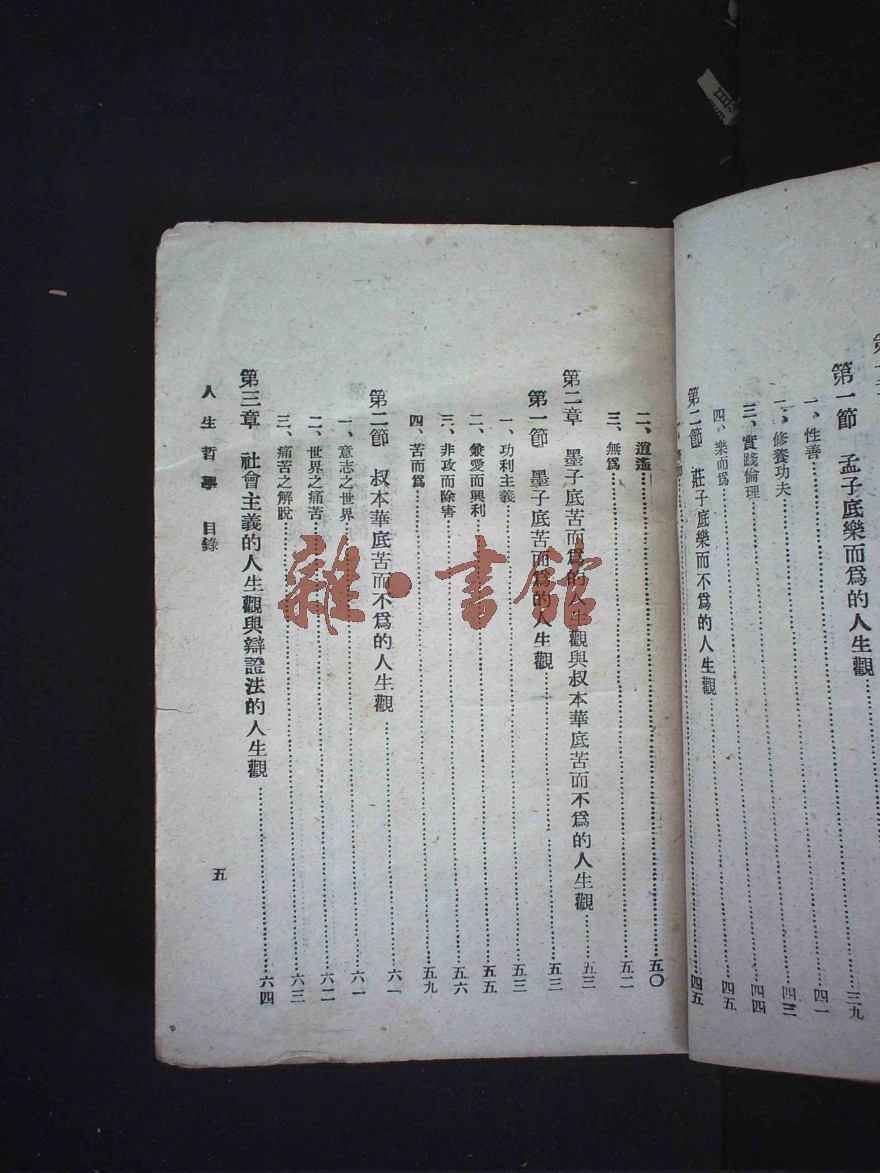 第一節　孟子底樂而爲的人生觀……三九
一、性善……四一
二、修養功夫……四三
三、實踐倫理……四四
四、樂而爲……四五
第二節　莊子底樂而不爲的人生觀……四五
二、逍遙……五〇
三、無爲……五二
第二章　墨子底苦而爲的人生觀與叔本華底苦而不爲的人生觀……五三
第一節　墨子底苦而爲的人生觀……五三
一、功利主義……五三
二、兼愛而興利……五五
三、非攻而除害……五六
四、苦而爲……五九
第二節　叔本華底苦而不爲的人生觀……六一
一、意志之世界……六一
二、世界之痛苦……六二
三、痛苦之解脫……六三
第三章　社會主義的人生觀與辯證法的人生觀……六四
人生哲學　目錄　五
雜·書館